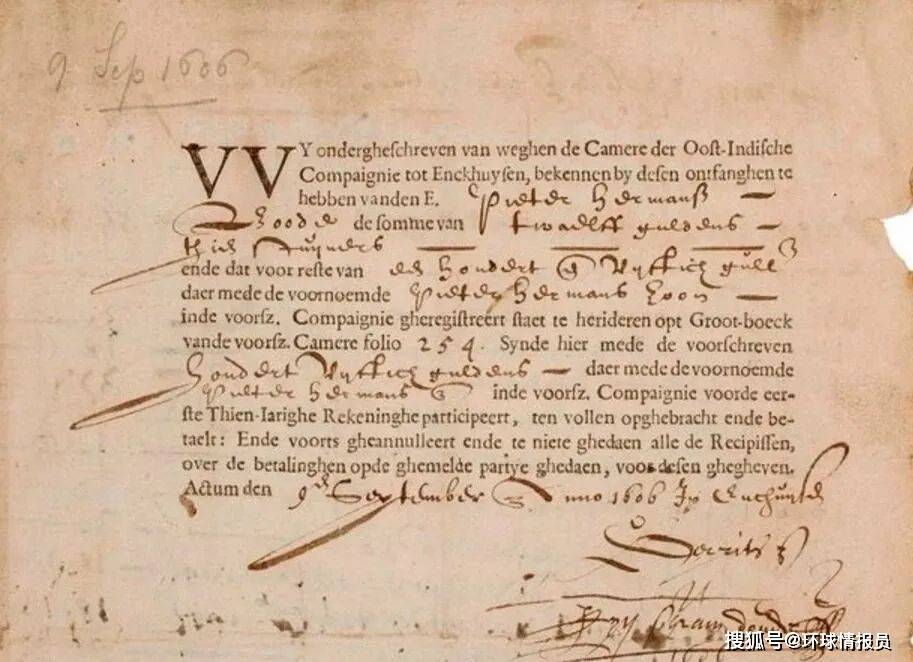 9 Sep 1606
VVY ondergheschreven van weghen de Camere der Oost-Indische
Compaignie tot Enckhuysen, bekennen by desen ontfanghen te
hebben vanden E. Pieter Hermansz
Boode de somme van twaelff guldens
thien stuyvers
ende dat voor reste van een hondert Vyftich gull
daer mede de voornoemde Pieter Hermans Boon
inde voorsz. Compaignie gheregistreert staet te herideren opt Groot-boeck
vande voorsz. Camere folio 254. Synde hier mede de voorschreven
hondert Vyftich guldens daer mede de voornoemde
Pieter Hermans inde voorsz. Compaignie voorde eer-
ste Thien-Iarighe Rekeninghe participeert, ten vollen opghebracht ende be-
taelt: Ende voorts gheannulleert ende te niete ghedaen alle de Recipissen,
over de betalinghen opde ghemelde partye ghedaen, voor desen ghegheven.
Actum den 9en September Anno 1606 In Enchuysen
搜狐号@环球情报员